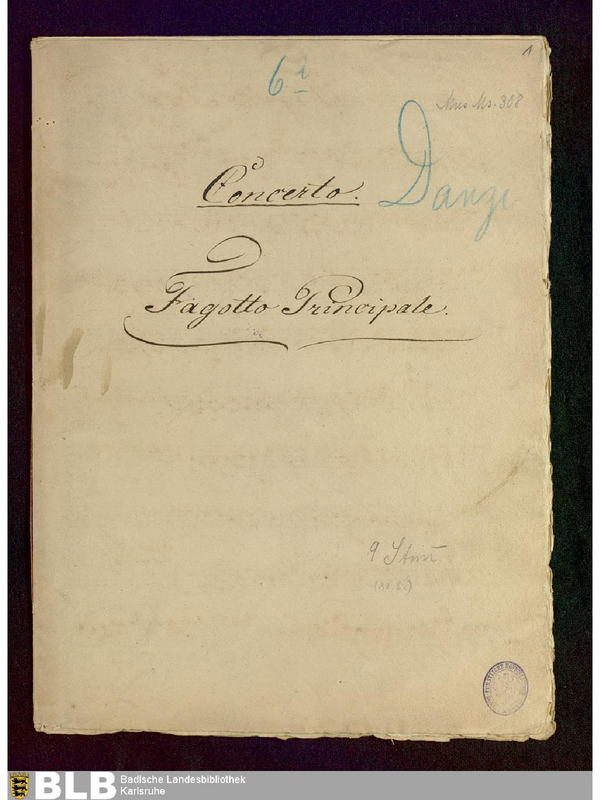 1
6
Mus. Ms. 308
Concerto.
Danzi
Fagotto Principale.
9 Stim̄
BLB Badische Landesbibliothek
Karlsruhe